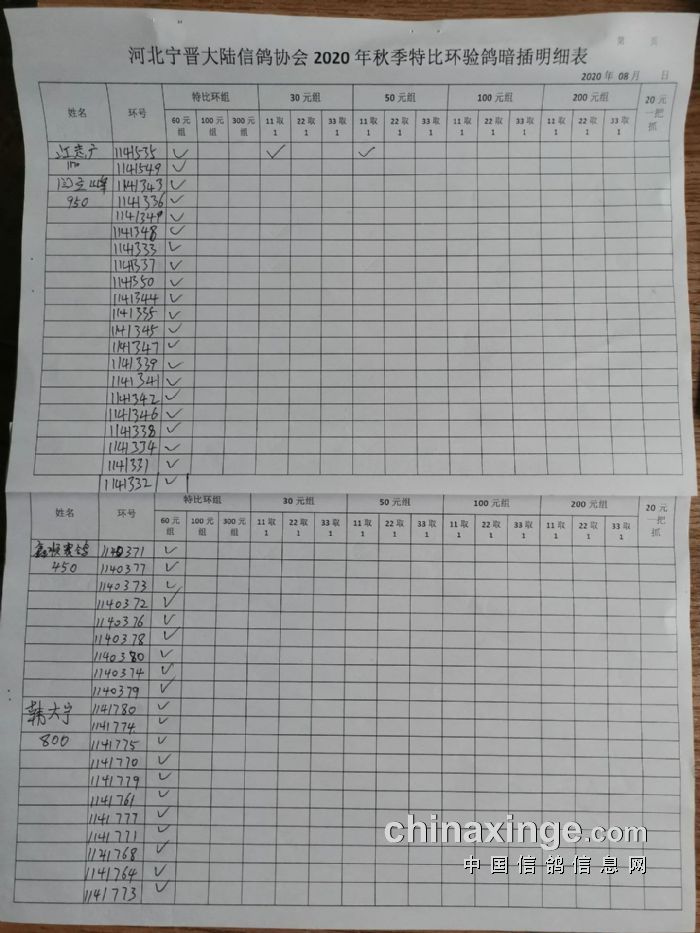 第 页
河北宁晋大陆信鸽协会 2020 年秋季特比环验鸽暗插明细表
2020 年 08 月 日
姓名 环号 特比环组 30 元组 50 元组 100 元组 200 元组 20 元一把抓
60 元组 100 元组 300 元组 11 取 1 22 取 1 33 取 1 11 取 1 22 取 1 33 取 1 11 取 1 22 取 1 33 取 1 11 取 1 22 取 1 33 取 1
1141535 ✓ ✓ ✓
1141549 ✓
1141343 ✓
950 1141336 ✓
1141349 ✓
1141348 ✓
1141333 ✓
1141337 ✓
1141350 ✓
1141344 ✓
1141335 ✓
1141345 ✓
1141347 ✓
1141339 ✓
1141341 ✓
1141342 ✓
1141346 ✓
1141338 ✓
1141334 ✓
1141331 ✓
1141332 ✓
姓名 环号 特比环组 30 元组 50 元组 100 元组 200 元组 20 元一把抓
60 元组 100 元组 300 元组 11 取 1 22 取 1 33 取 1 11 取 1 22 取 1 33 取 1 11 取 1 22 取 1 33 取 1 11 取 1 22 取 1 33 取 1
鑫顺赛鸽 1140371 ✓
450 1140377 ✓
1140373 ✓
1140372 ✓
1140376 ✓
1140378 ✓
1140380 ✓
1140374 ✓
1140379 ✓
韩大宁 1141780 ✓
1141774 ✓
800 1141775 ✓
1141770 ✓
1141779 ✓
1141761 ✓
1141777 ✓
1141771 ✓
1141768 ✓
1141764 ✓
1141773 ✓
chinaxinge.com
中国信鸽信息网